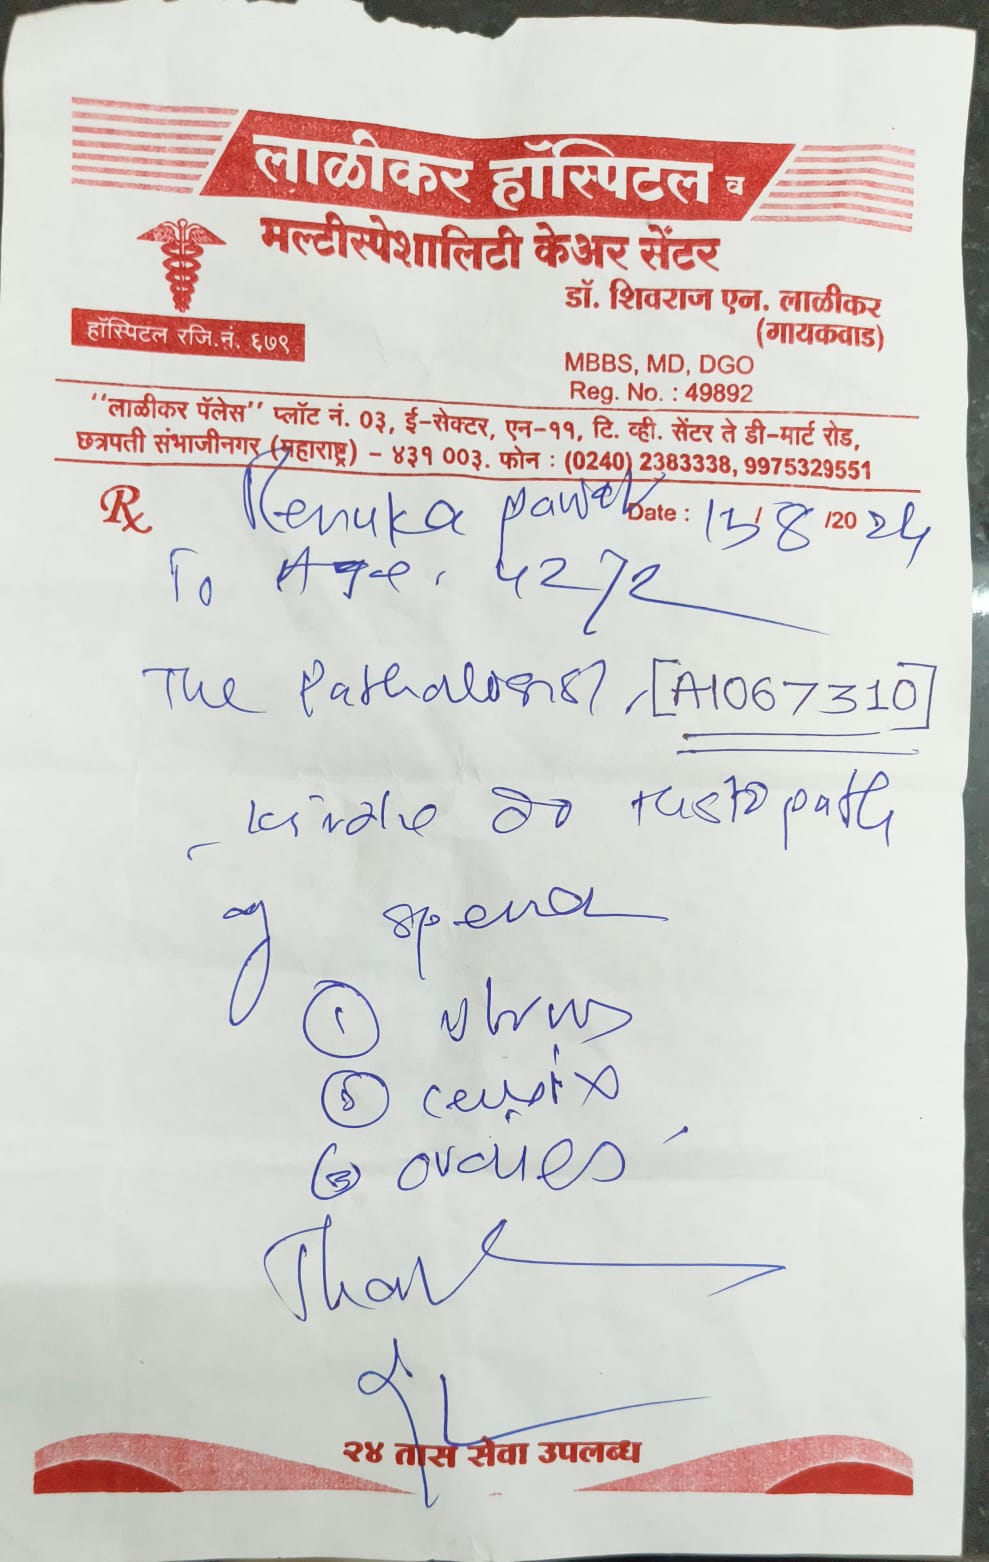 लाळीकर हॉस्पिटल व
मल्टीस्पेशालिटी केअर सेंटर
डॉ. शिवराज एन. लाळीकर
(गायकवाड)
हॉस्पिटल रजि.नं. ६७९
MBBS, MD, DGO
Reg. No. : 49892
"लाळीकर पॅलेस" प्लॉट नं. ०३, ई-सेक्टर, एन-११, टि. व्ही. सेंटर ते डी-मार्ट रोड,
छत्रपती संभाजीनगर (महाराष्ट्र) – ४३१ 00३. फोन : (0240) 2383338, 9975329551
Rx Renuka Pawar Date : 13/8/2024
To Age. 42
The Pathologist, [A1067310]
do histopath
of
① uterus
② cervix
③ ovaries
Thank
२४ तास सेवा उपलब्ध